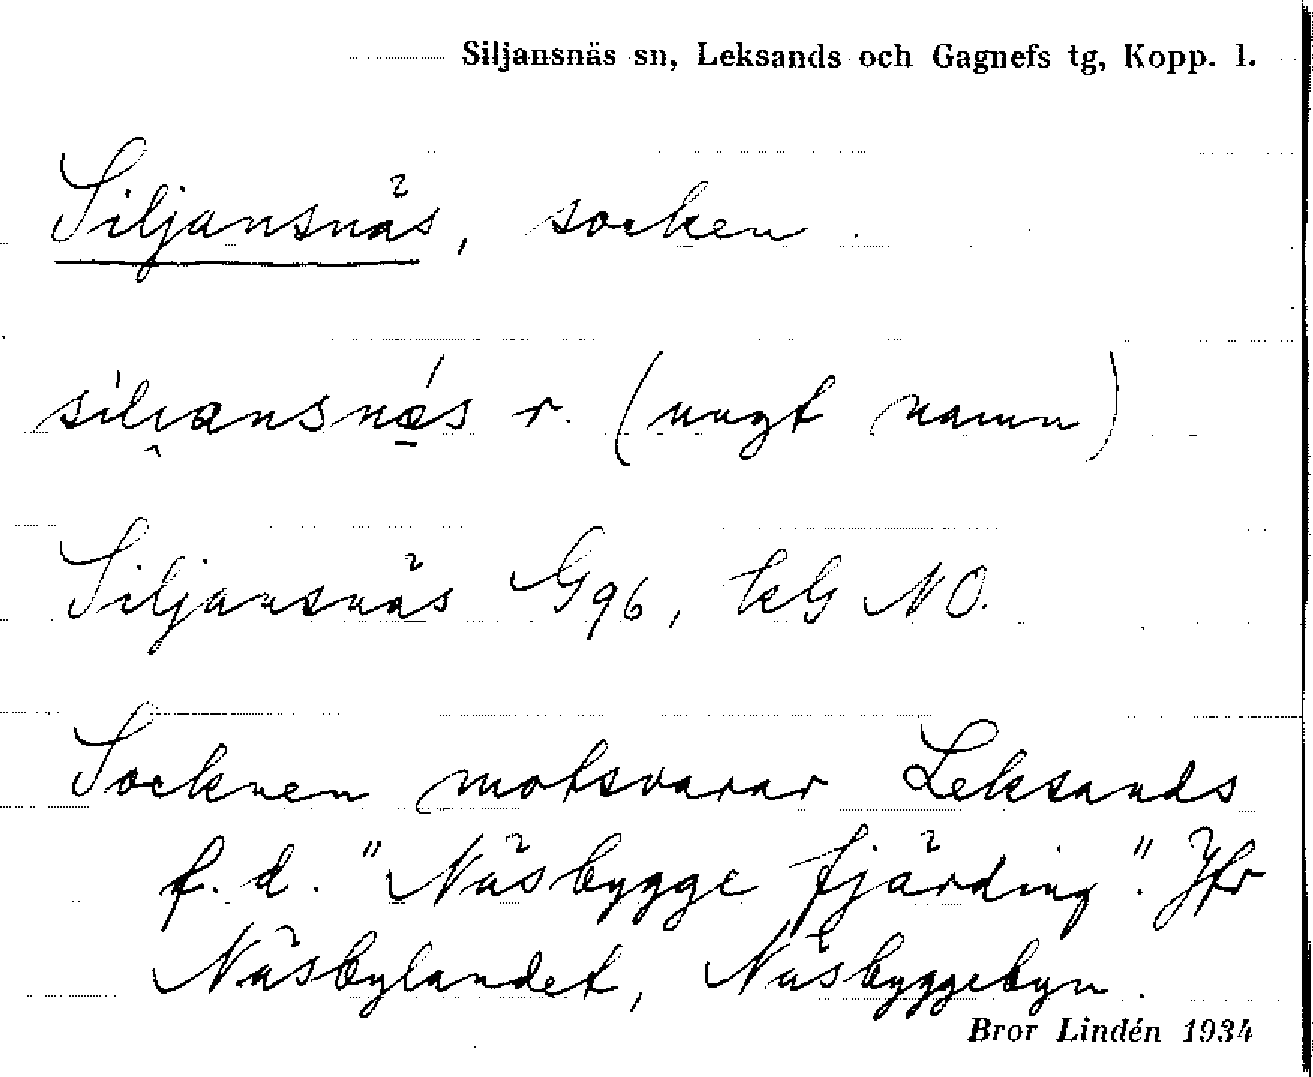 Siljansnäs sn, Leksands och Gagnefs tg, Kopp. l.
Siljansnäs, socken.
sìli̯ansnǽs r. (ungt namn)
Siljansnäs G96, kG NO.
Socknen motsvarar Leksands
f.d. "Näsbygge fjärding". Jfr
Näsbylandet, Näsbyggebyn.
Bror Lindén 1934